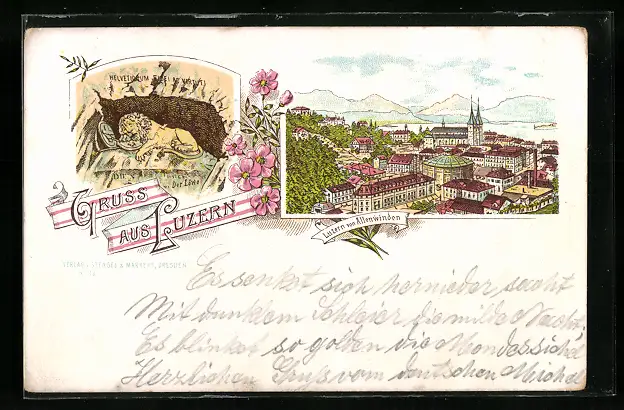 HELVETIORUM FIDEI AC VIRTUTI
Der Löwe
GRUSS
AUS LUZERN
Luzern von Allenwinden
VERLAG V. STENGEL & MARKERT, DRESDEN
Es senket sich hernieder sacht
Mit dunklem Schleier die milde Nacht.
Es blinket so golden die Mondessichel
Herzlichen Gruss vom deutschen Michel